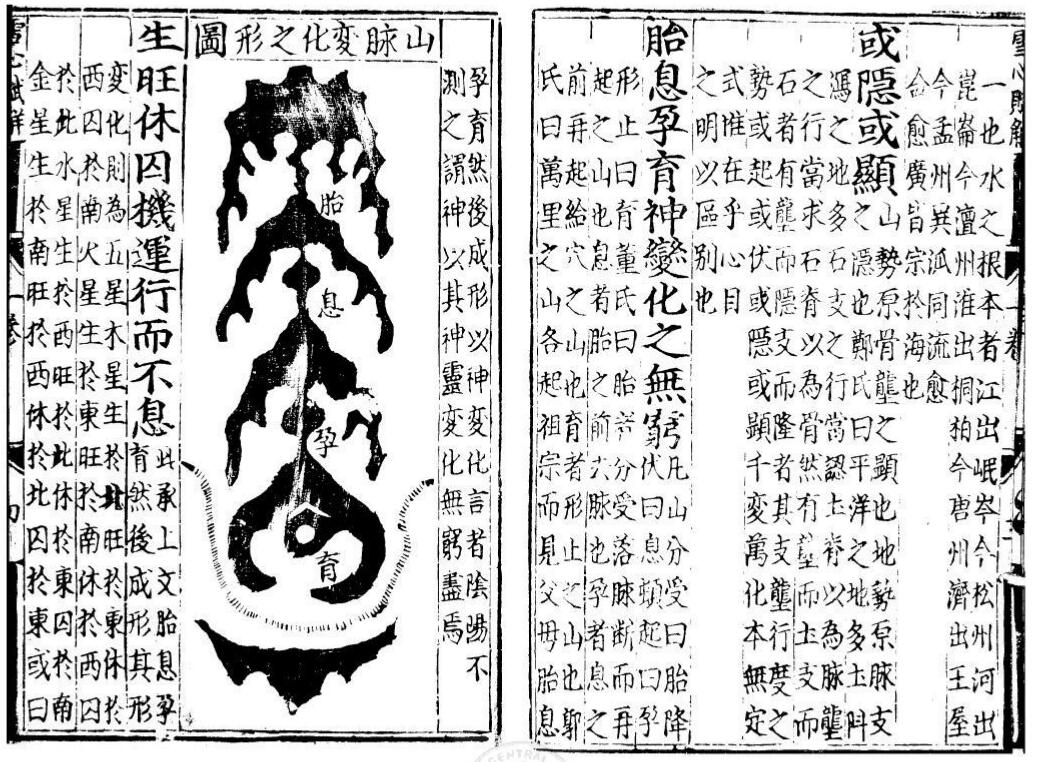 雪心賦解
一卷
一也水之根本者江出岷岑今松州河出
崑崙今澶州淮出桐柏今唐州濟出王屋
今孟州異派同流愈
合愈廣皆宗於海也
或隱或顯
山勢原骨壟之顯也地勢原脉支
之隱也鄭氏曰平洋之地多土阧
瀉之地多石支之行當認土脊以為脉壟
之行當求石脊以為骨然有壟而土支而
石者有壟而隱支而隆者其支壟行度之
勢或起或伏或隱或顯千变萬化本無定
式惟在乎心目
之明以區别也
胎息孕育神變化之無窮
凡山分受曰胎降
伏曰息頓起曰孕
形止曰育董氏曰胎者分受落脉斷而再
起之山也息者胎之前穴脉也孕者息之
前再起給穴之山也育者形止之山也郭
氏曰萬里之山各起祖宗而見父母胎息
孕育然後成形以神变化言者陰陽不
測之謂神以其神靈变化無窮盡焉
山脉变化之形圖
胎
息
孕
育
生旺休囚機運行而不息
此承上文胎息孕
育然後成形其形
变化則為五星木星生於北旺於東休於
西囚於南火星生於東旺於南休於西囚
於北水星生於西旺於北休於東囚於南
金星生於南旺於西休於北囚於東或曰
一卷
CENTRAL